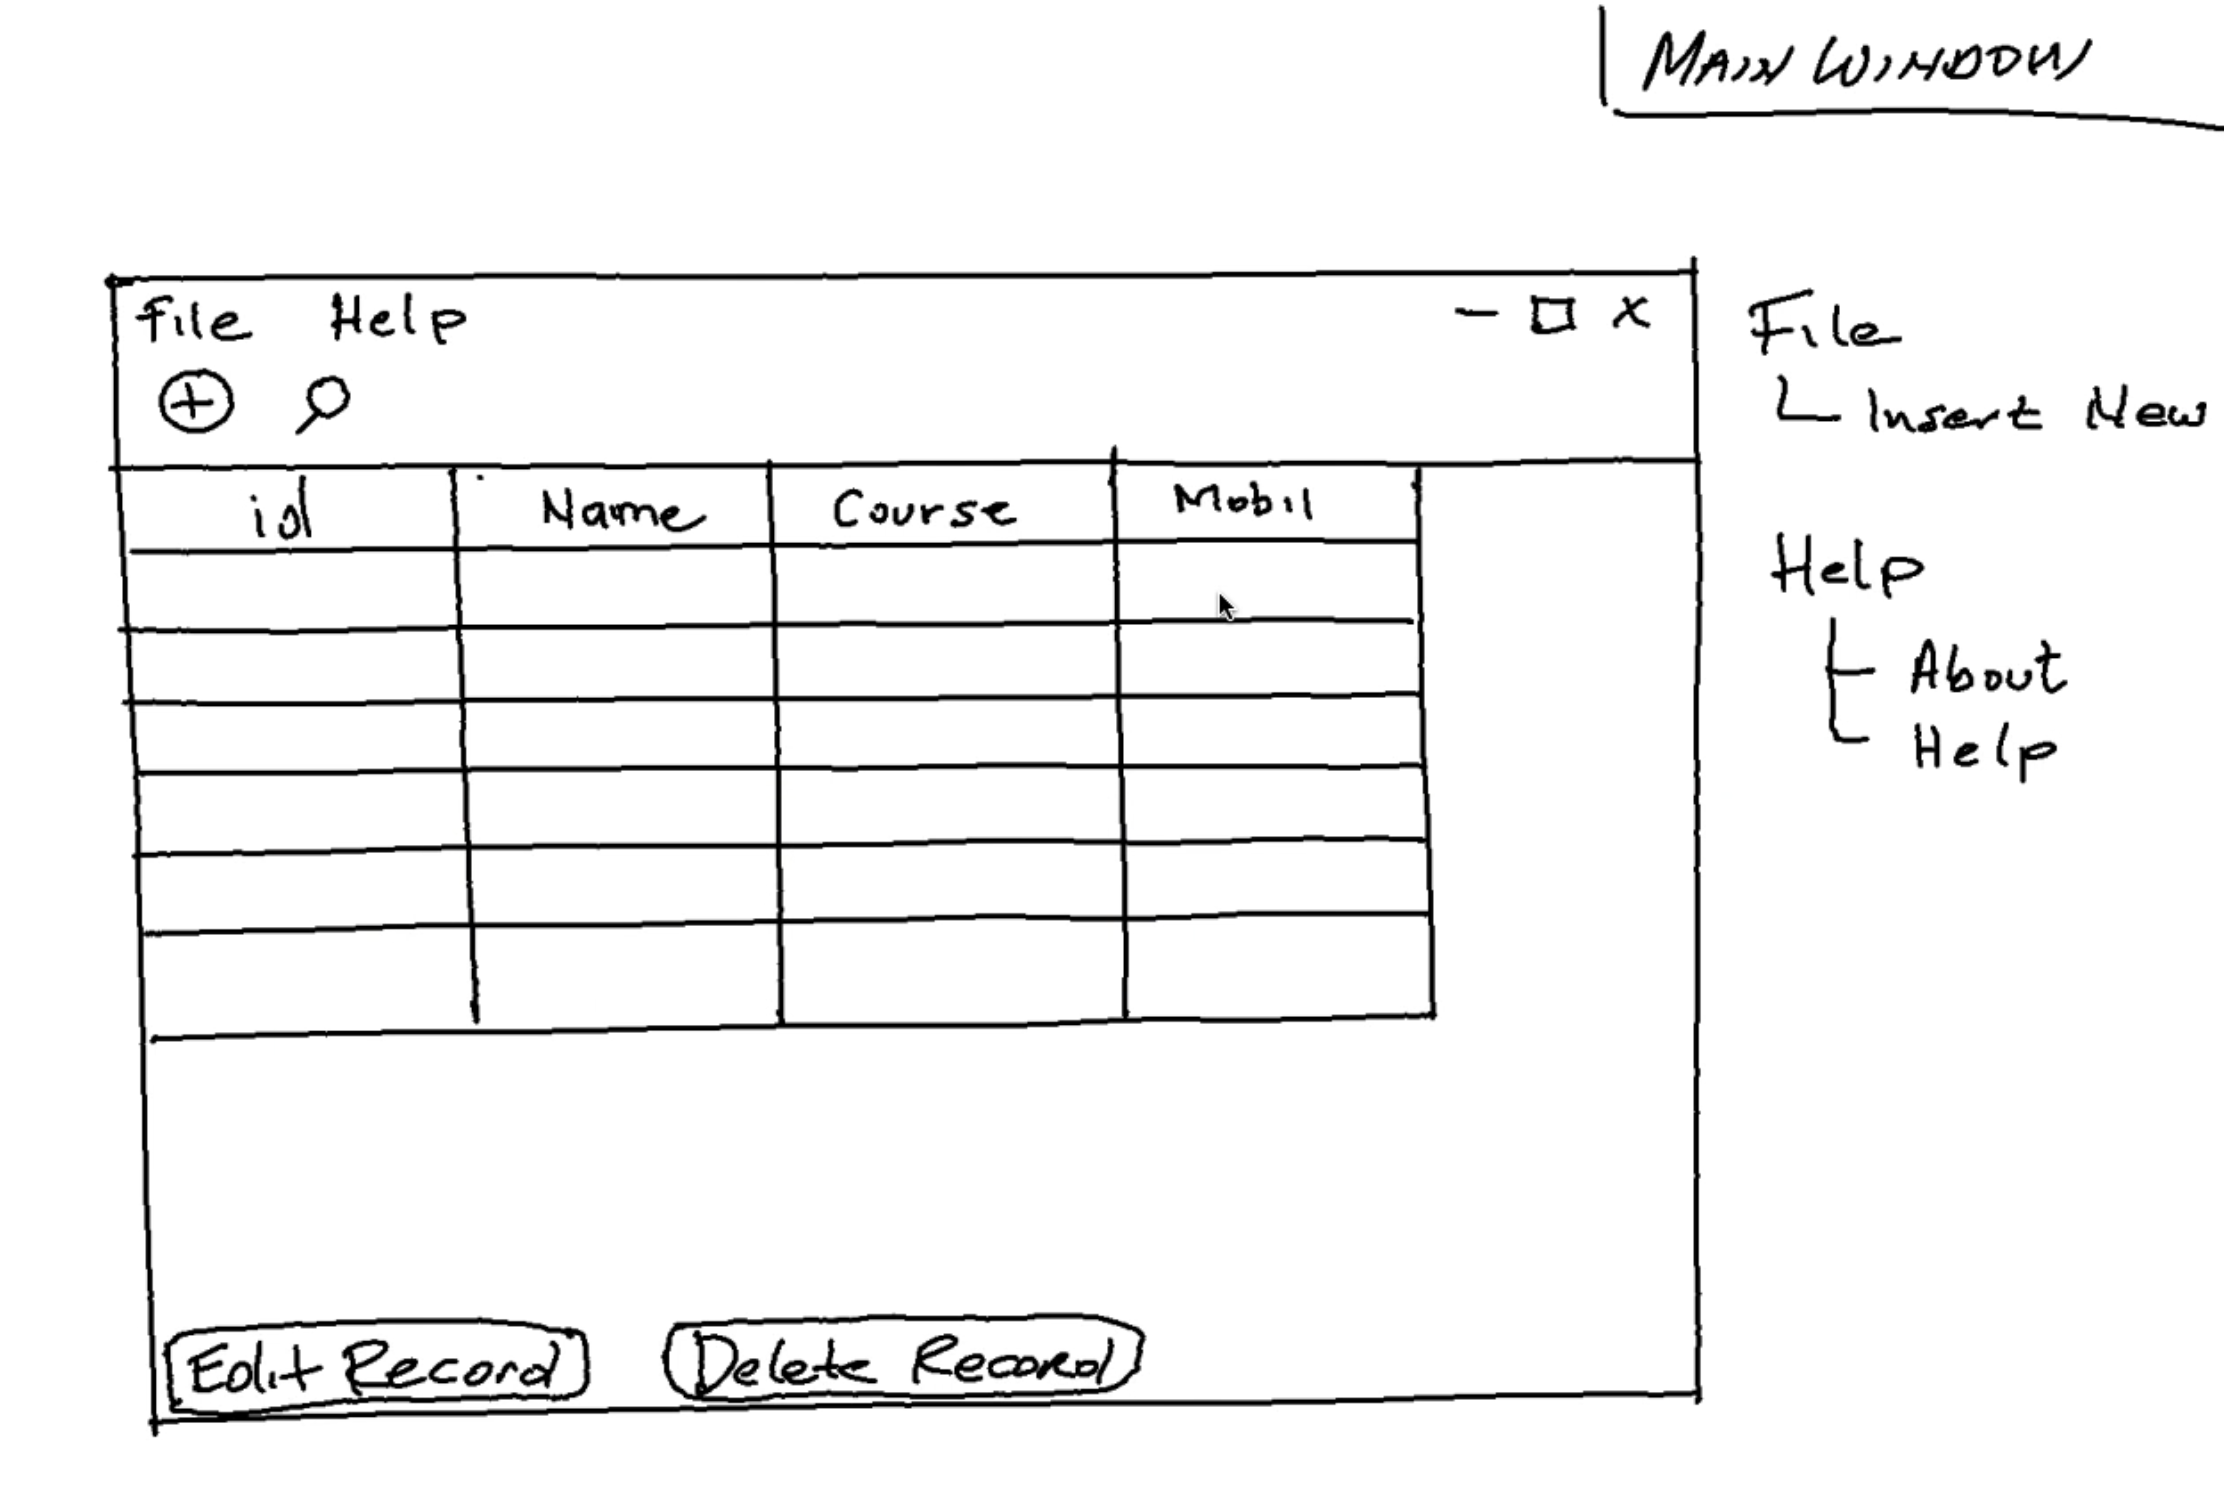 MAIN WINDOW
File Help
id Name Course Mobil
Edit Record Delete Record
File
Insert New
Help
About
Help